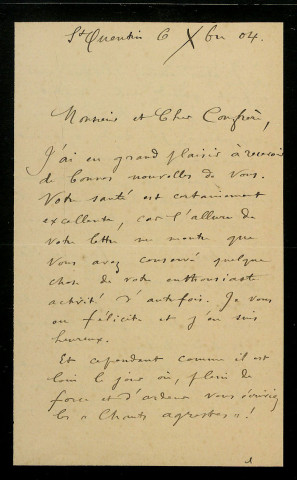 St Quentin 6 Xbre 04.
Monsieur et Cher Confrère,
J'ai eu grand plaisir à recevoir
de bonnes nouvelles de vous.
Votre santé est certainement
excellente, car l'allure de
votre lettre me montre que
vous avez conservé quelque
chose de votre enthousiaste
activité d'autrefois. Je vous
en félicite et j'en suis
heureux.
Et cependant comme il est
loin le jour où, plein de
force et d'ardeur vous écriviez
les « Chants agrestes » !